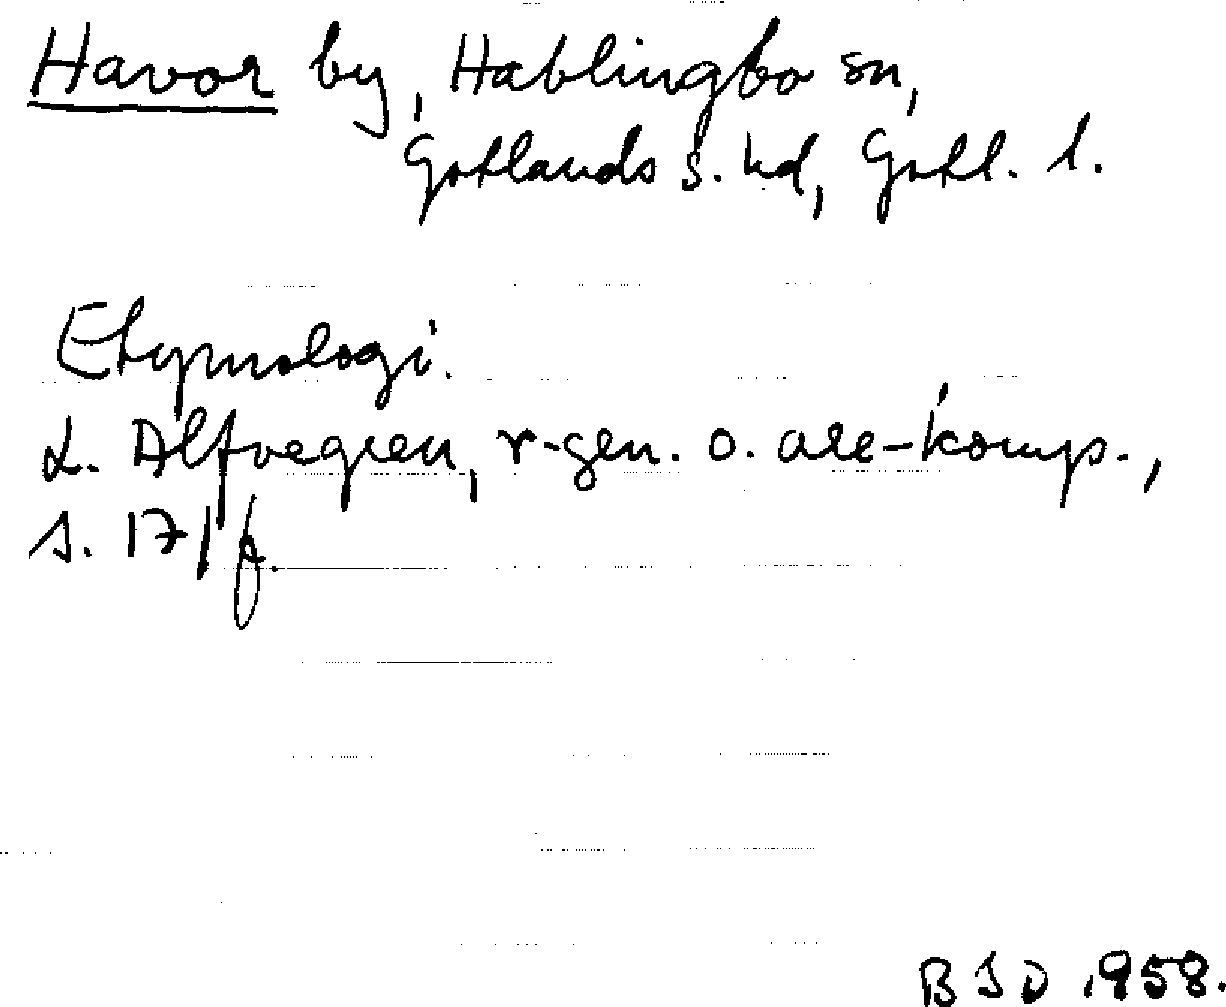 Havor by, Hablingbo sn,
Gotlands s. hd, Gotl. l.
Etymologi.
L. Alfvegren, r-gen. o. are-komp.,
s. 171 f.
BSD 1958.